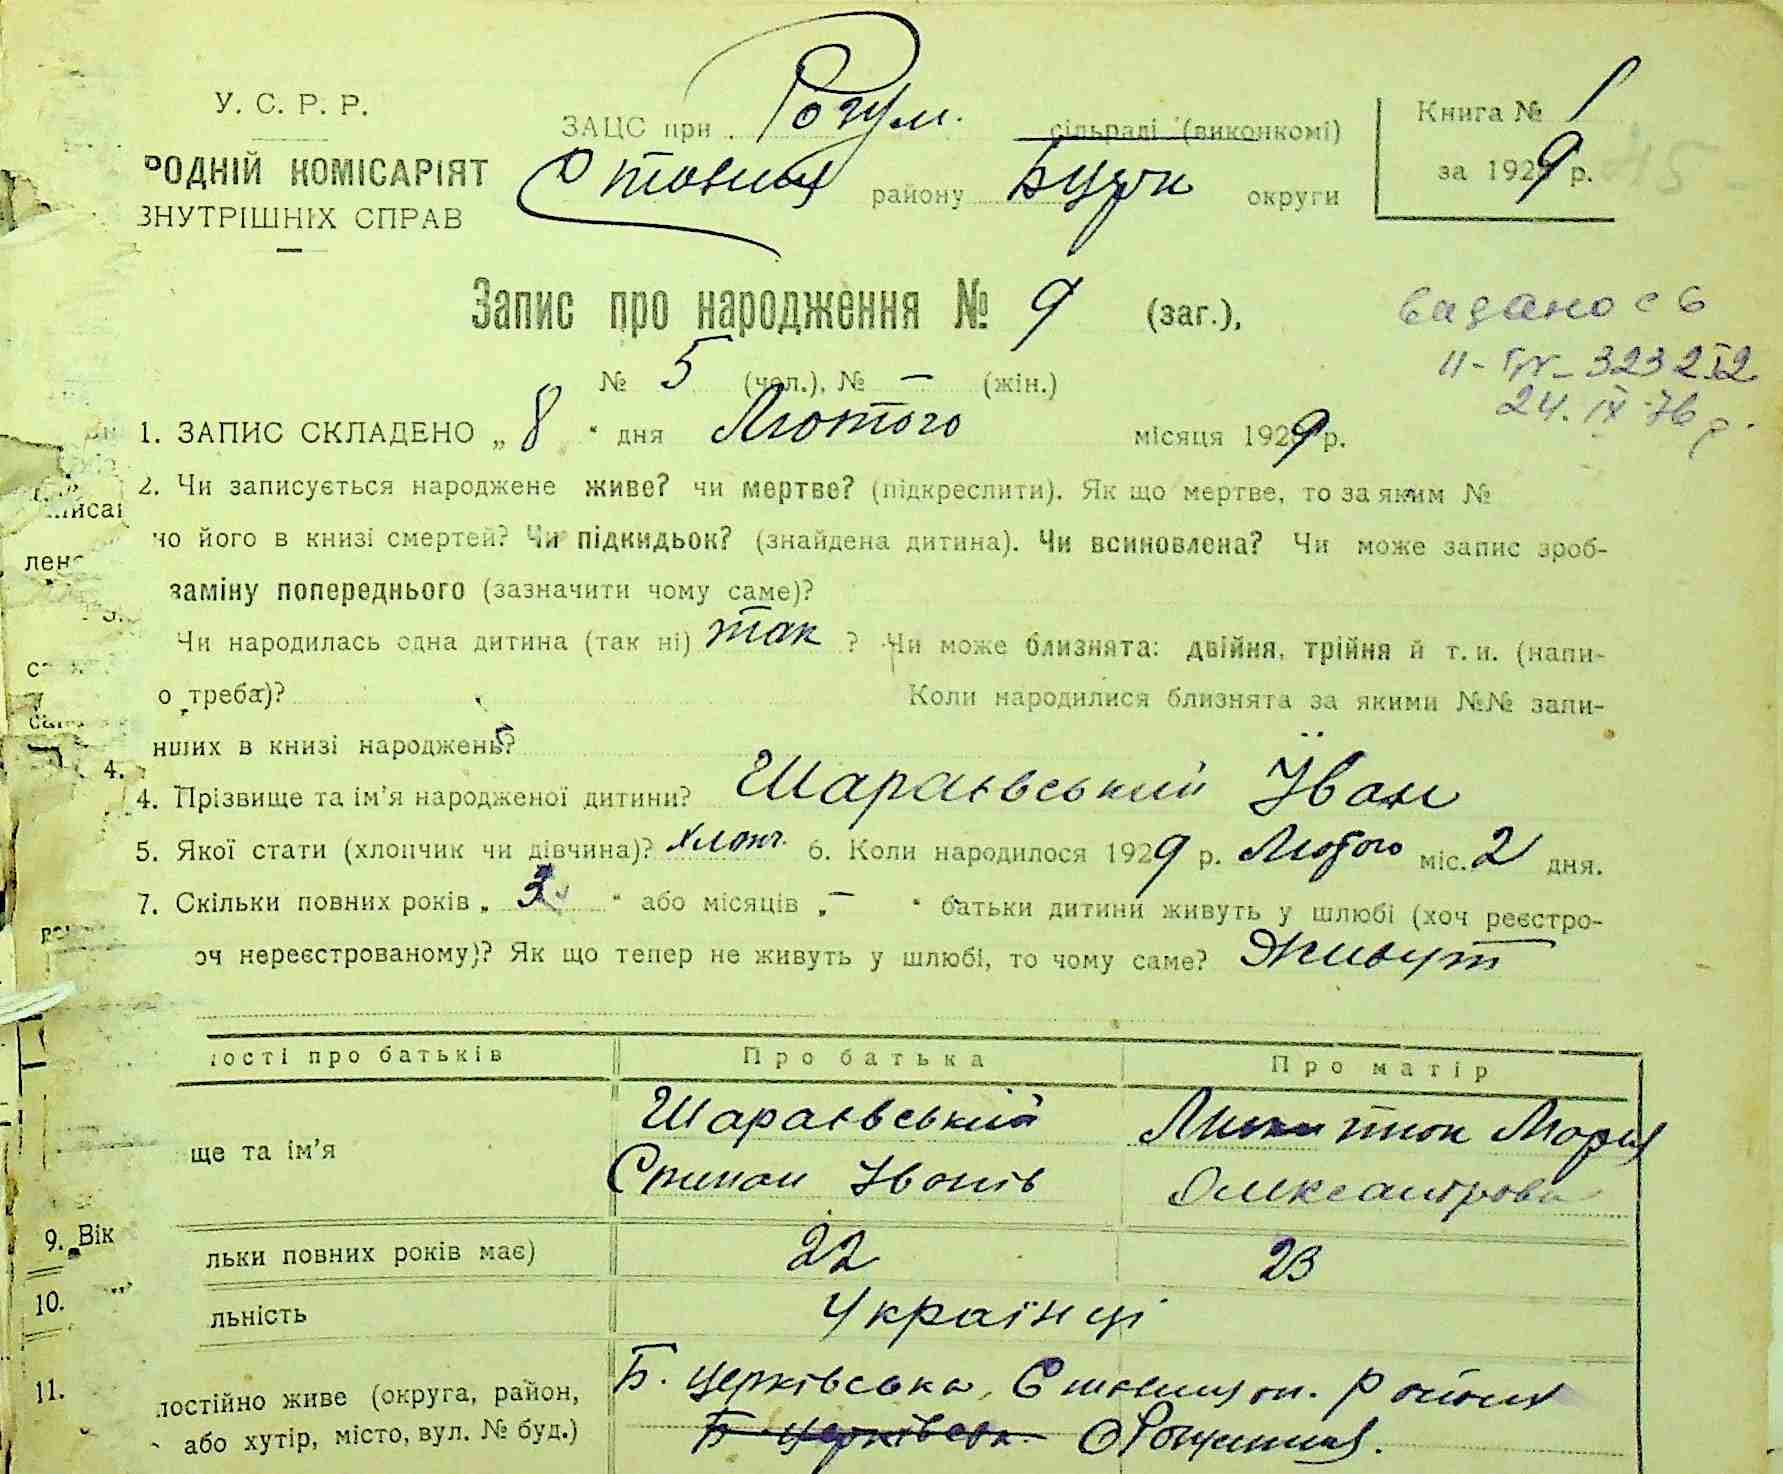 У. С. Р. Р.
РОДНІЙ КОМІСАРІЯТ
ВНУТРІШНІХ СПРАВ
ЗАЦС при сільраді (виконкомі)
району округи
Книга № 1
за 1929 р.
Запис про народження № 9 (заг.),
№ 5 (чол.). № — (жін.)
видано с б
24. ІХ 76 р.
1. ЗАПИС СКЛАДЕНО „ 8 " дня Лютого місяця 1929 р.
2. Чи записується народжене живе? чи мертве? (підкреслити). Як що мертве, то за яким №
но його в книзі смертей? Чи підкидьок? (знайдена дитина). Чи всиновлена? Чи може запис зроб-
заміну попереднього (зазначити чому саме)?
Чи народилась одна дитина (так ні) так ? Чи може близнята: двійня, трійня й т. и. (напи-
о треба)? Коли народилися близнята за якими №№ запи-
нших в книзі народжень?
4. Прізвище та ім'я народженої дитини? Шараєвський Іван
5. Якої стати (хлопчик чи дівчина)? хлопч. 6. Коли народилося 1929 р. Лютого міс. 2 дня.
7. Скільки повних років „ 3 " або місяців „ — " батьки дитини живуть у шлюбі (хоч реєстро-
оч нереєстрованому)? Як що тепер не живуть у шлюбі, то чому саме? Живут
ості про батьків Про батька Про матір
ще та ім'я
Шараєвський Марія
Степан Іванів Олександрова
9. Вік
льки повних років має) 22 23
10.
льність Українці
11.
постійно живе (округа, район, Б. Церківська,
або хутір, місто, вул. № буд.) Б Церківськ.